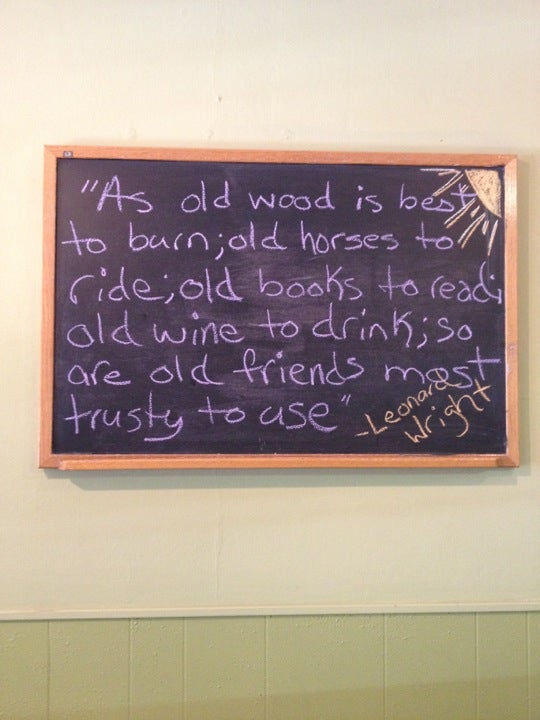 "As old wood is best
to burn; old horses to
ride; old books to read;
old wine to drink; so
are old friends most
trusty to use"
-Leonard
Wright